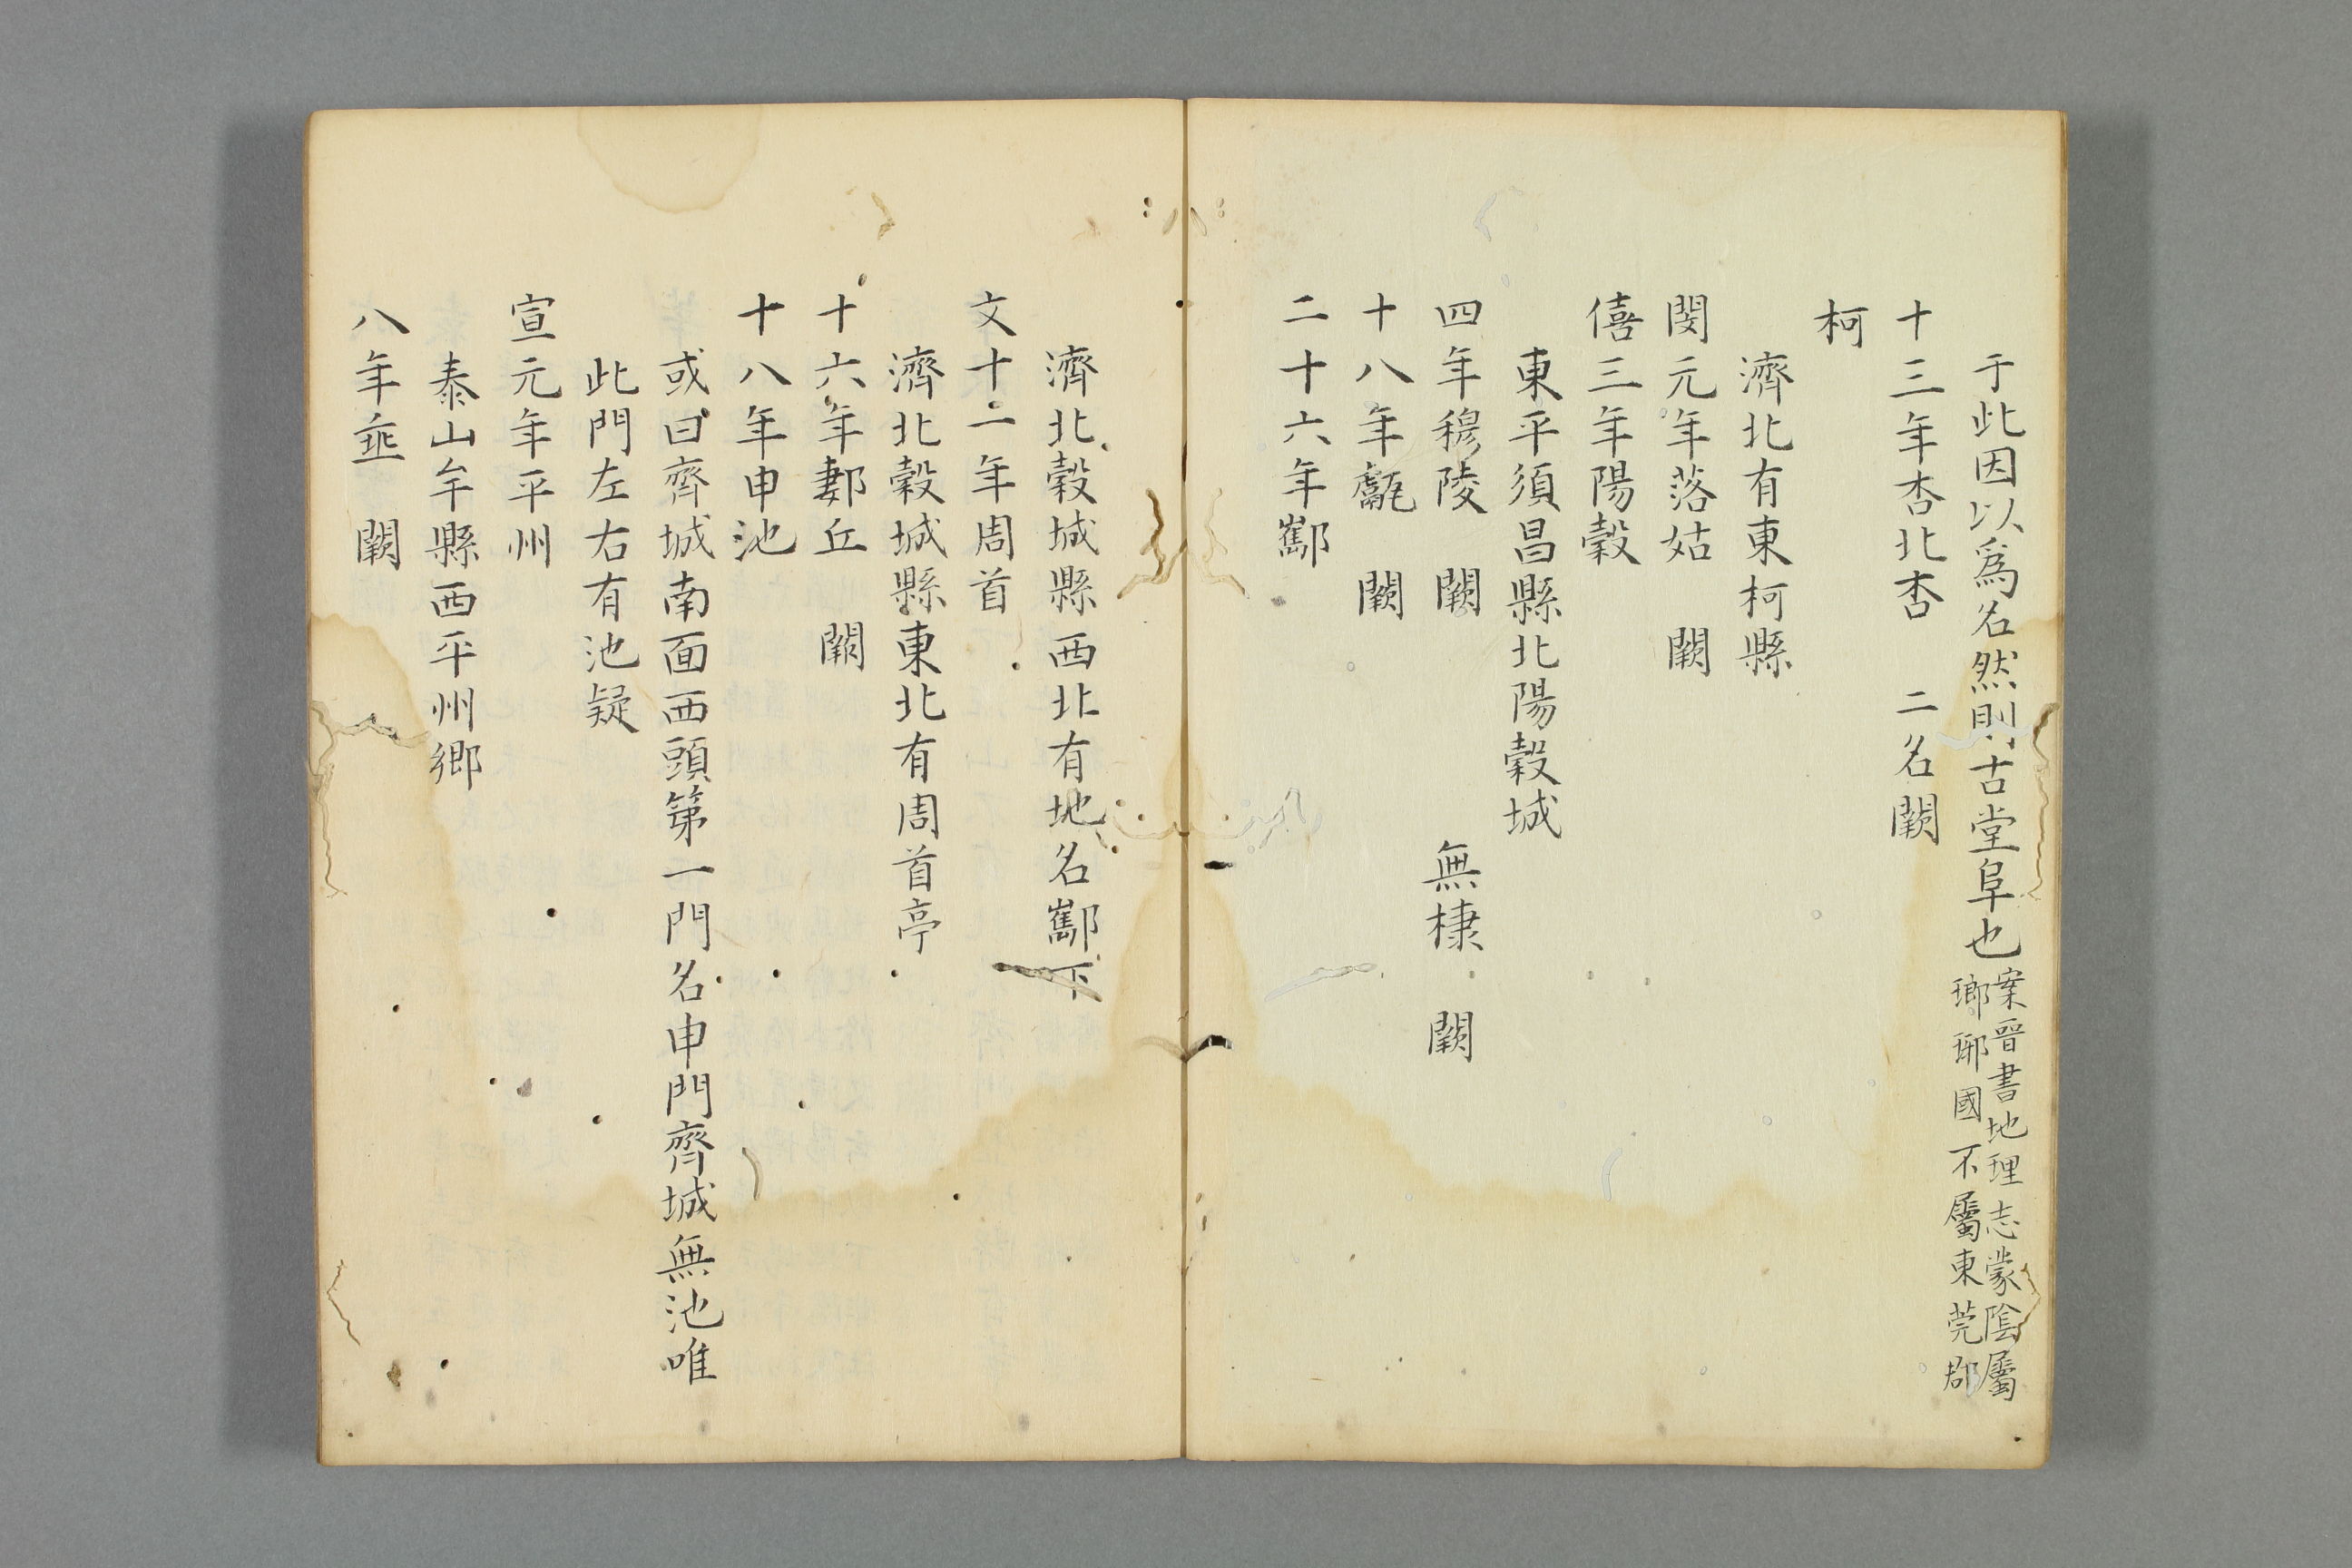 于此因以爲名然則古堂阜也案晉書地理志蒙陰屬
瑯琊國不屬東莞郡
十三年杏北杏　二名闕
柯
濟北有東柯縣
閔元年落姑　闕
僖三年陽穀
東平須昌縣北陽穀城
四年穆陵　闕　　　　無棣　闕
十八年甗　闕
二十六年酅
濟北穀城縣西北有地名酅下
文十一年周首
濟北穀城縣東北有周首亭
十六年郪丘　闕
十八年申池
或曰齊城南面西頭第一門名申門齊城無池唯
此門左右有池疑
宣元年平州
泰山牟縣西平州鄉
八年垂　闕